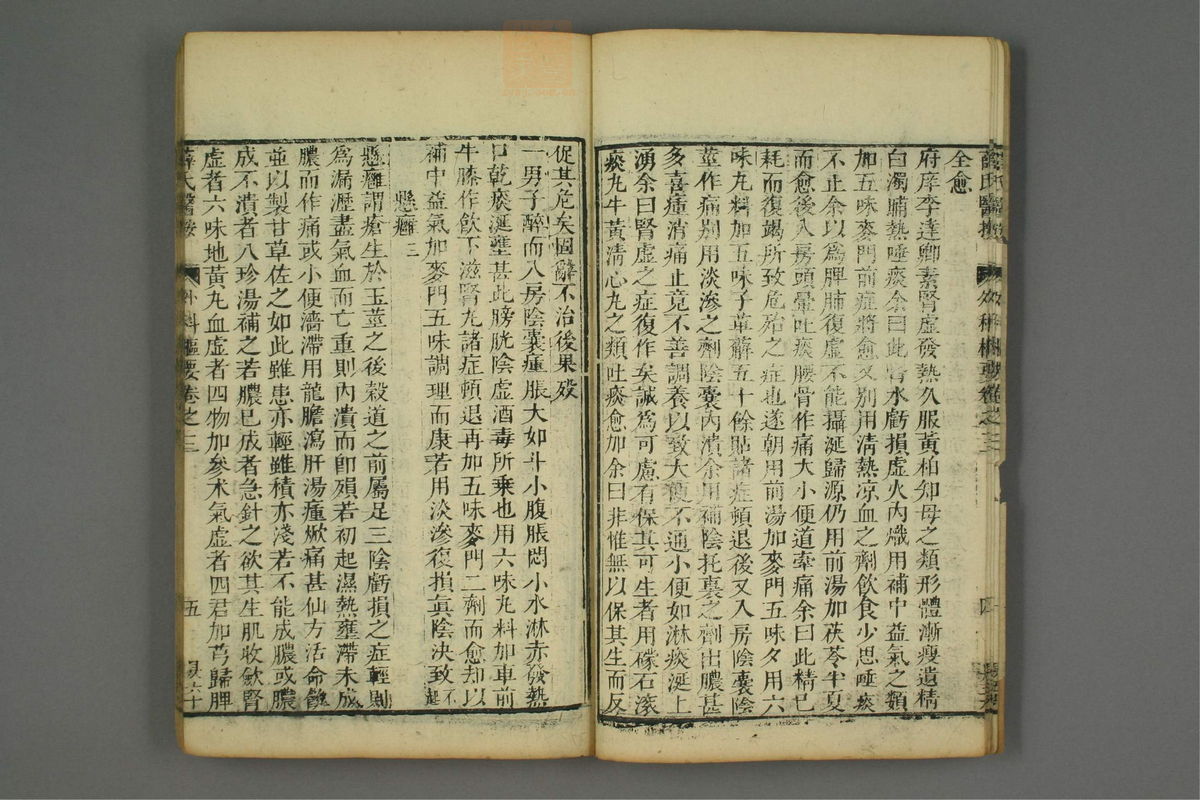 薛氏醫按
外科樞要卷之三
四
全愈
府庠李達卿素腎虛發熱久服黃柏知母之類形體漸瘦遺精
白濁晡熱唾痰余曰此腎水虧損虛火內熾用補中益氣之類
加五味麥門前症將愈又別用清熱凉血之劑飲食少思唾痰
不止余以爲脾肺復虛不能攝涎歸源仍用前湯加茯苓半夏
而愈後入房頭暈吐痰腰骨作痛大小便道牽痛余曰此精已
耗而復竭所致危殆之症也遂朝用前湯加麥門五味夕用六
味丸料加五味子萆薢五十餘貼諸症頓退後又入房陰囊陰
莖作痛別用淡滲之劑陰囊內潰余用補陰托裏之劑出膿甚
多喜瘇消痛止竟不善調養以致大便不通小便如淋痰涎上
湧余曰腎虛之症復作矣誠爲可慮有保其可生者用礞石滚
痰丸牛黃清心丸之類吐痰愈加余曰非惟無以保其生而反
促其危矣固辭不治後果歿
一男子醉而入房陰囊瘇脹大如斗小腹脹悶小水淋赤發熱
口乾痰涎壅甚此膀胱陰虛酒毒所乗也用六味丸料加車前
牛膝作飲下滋腎丸諸症頓退再加五味麥門二劑而愈却以
補中益氣加麥門五味調理而康若用淡滲復損眞陰決致不起
懸癰 三
懸癰謂瘡生於玉莖之後穀道之前屬足三陰虧損之症輕則
爲漏瀝盡氣血而亡重則內潰而即殞若初起濕熱壅滯未成
膿而作痛或小便濇滯用龍膽瀉肝湯瘇焮痛甚仙方活命飲
並以製甘草佐之如此雖患亦輕雖積亦淺若不能成膿或膿
成不潰者八珍湯補之若膿已成者急針之欲其生肌收斂腎
虛者六味地黃丸血虛者四物加參朮氣虛者四君加芎歸脾
薛氏醫按
外科樞要卷之三
五
吳六十